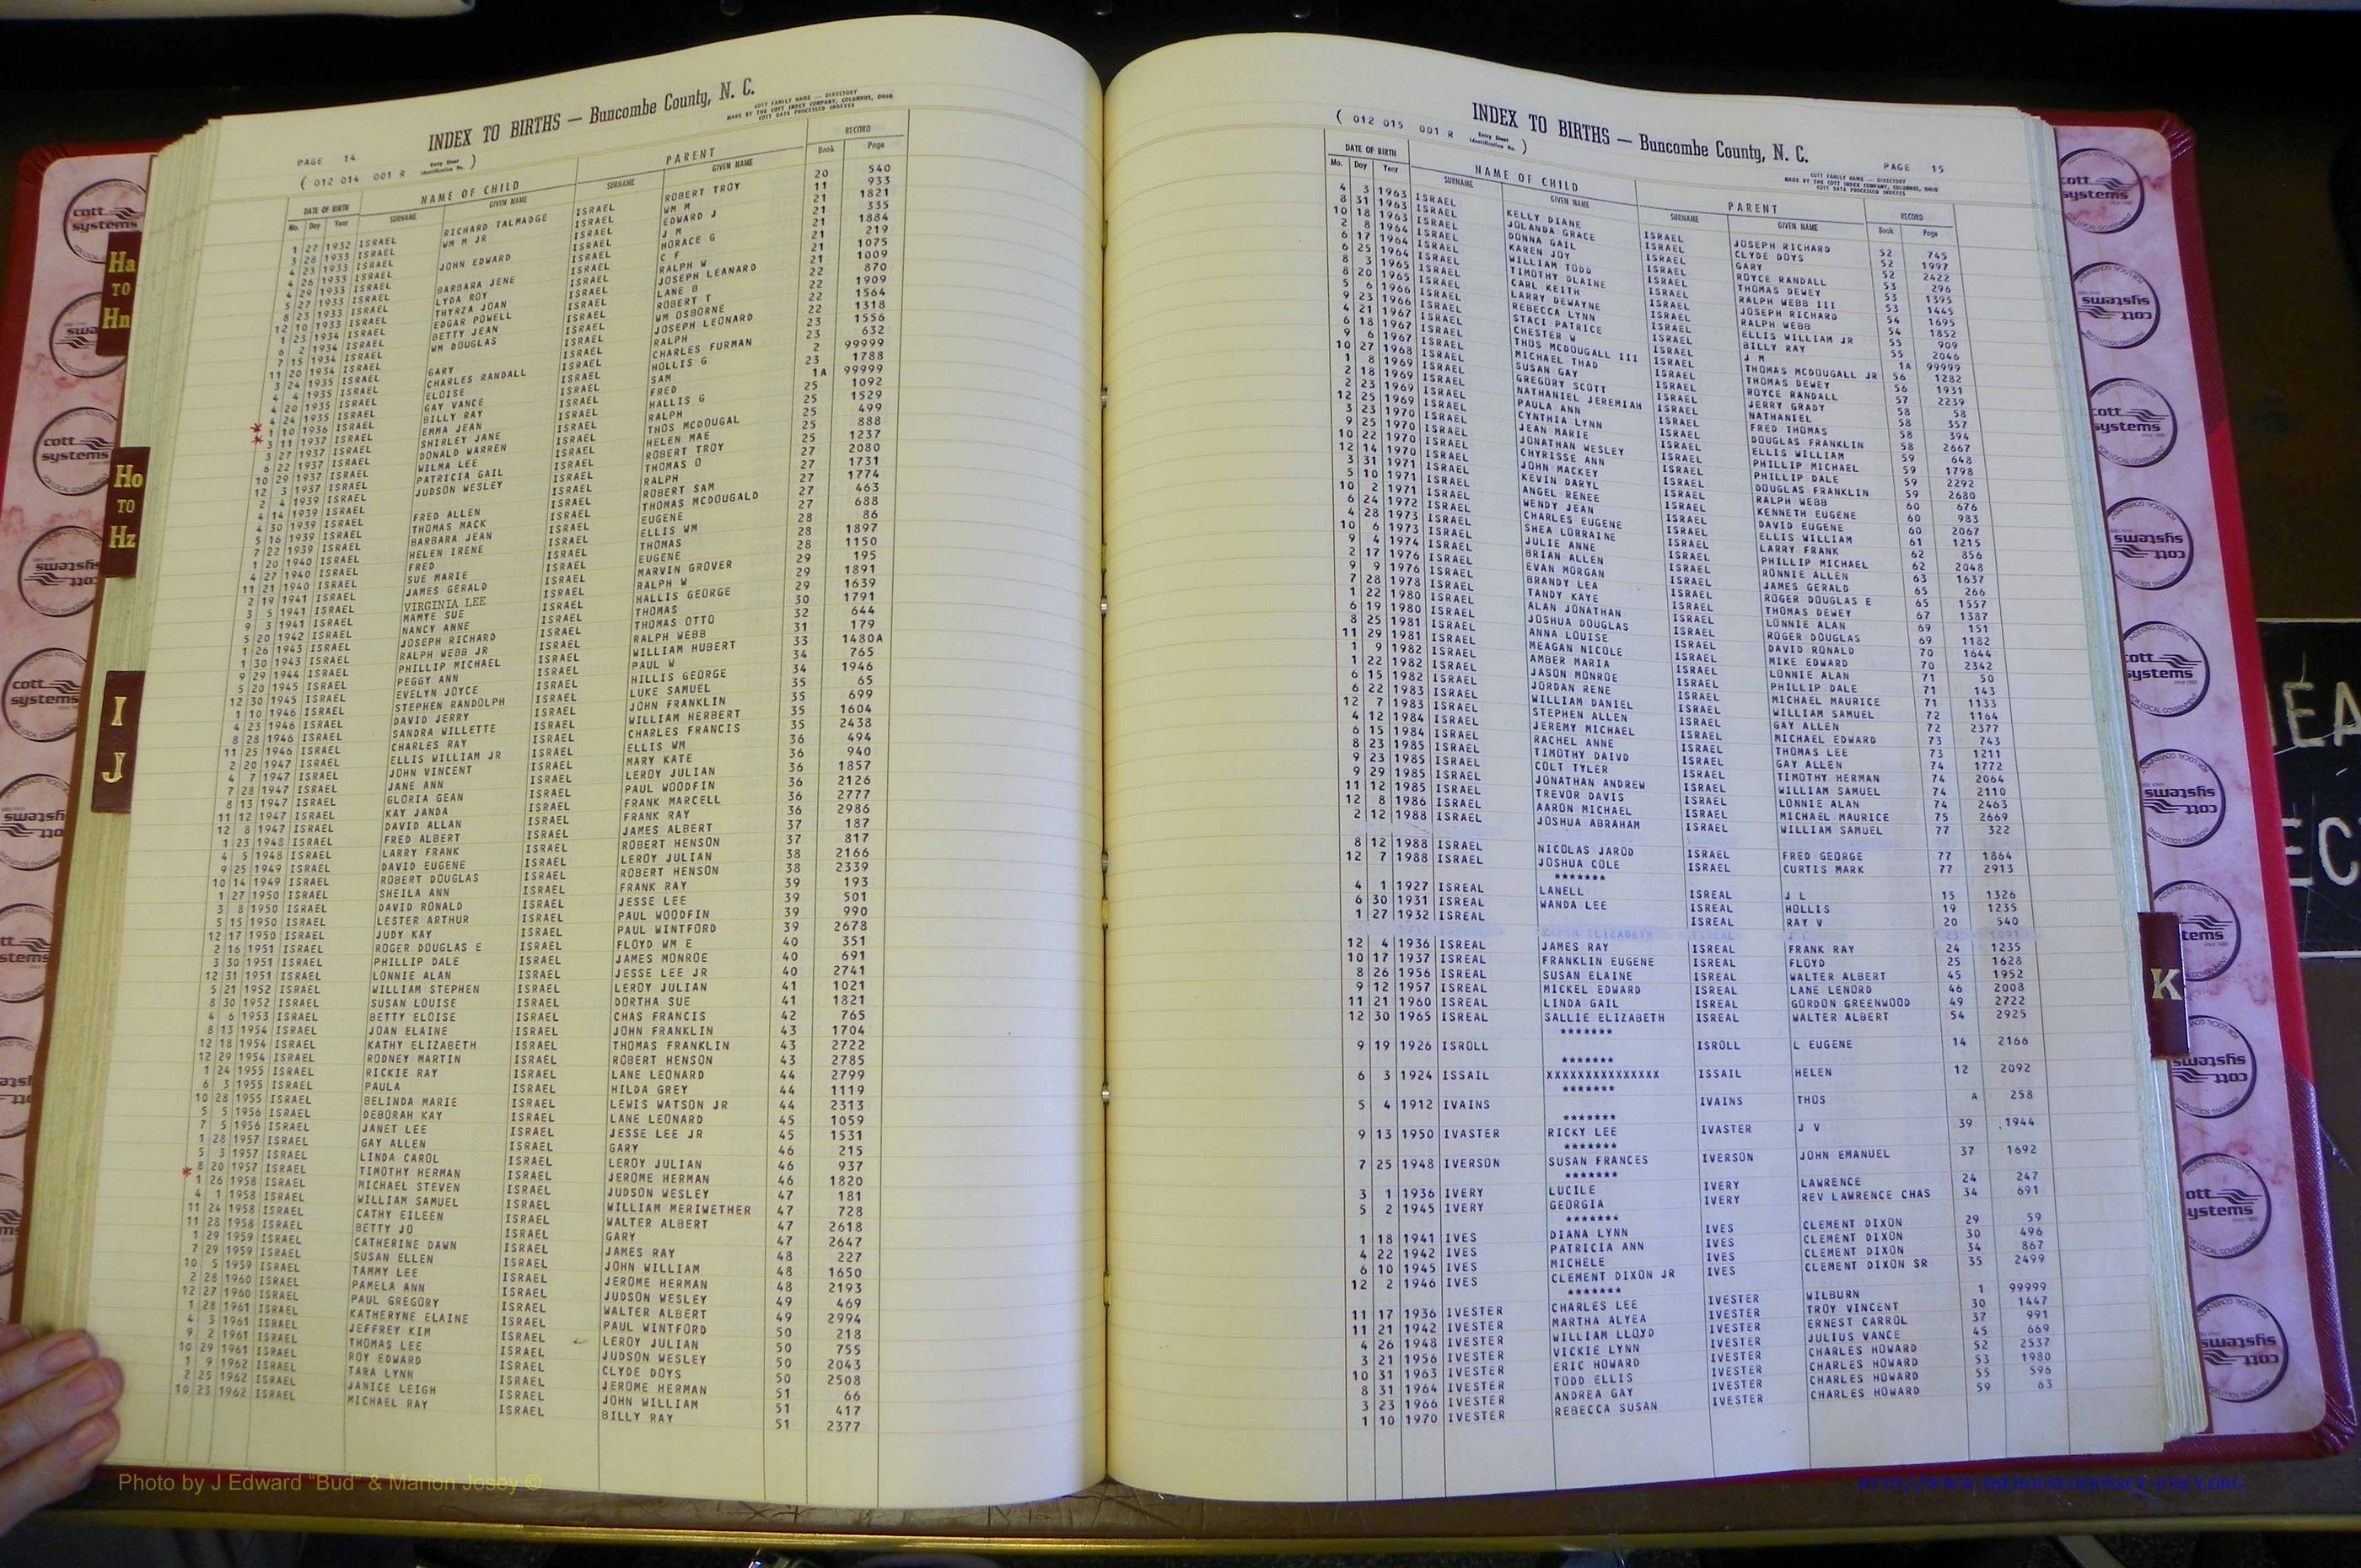 INDEX TO BIRTHS — Buncombe County, N. C.
COTT FAMILY NAME — DIRECTORY
MADE BY THE COTT INDEX COMPANY, COLUMBUS, OHIO
COTT DATA PROCESSED INDEXES
PAGE 14
( 012 014 001 R Entry Sheet Identification No. )
DATE OF BIRTH NAME OF CHILD PARENT RECORD
Mo. Day Year SURNAME GIVEN NAME SURNAME GIVEN NAME Book Page
1 27 1932 ISRAEL RICHARD TALMADGE ISRAEL ROBERT TROY 20 540
3 28 1933 ISRAEL WM M JR ISRAEL WM M 11 933
4 23 1933 ISRAEL ISRAEL EDWARD J 21 1821
4 26 1933 ISRAEL JOHN EDWARD ISRAEL J M 21 335
4 29 1933 ISRAEL ISRAEL HORACE G 21 1884
5 27 1933 ISRAEL BARBARA JENE ISRAEL C F 21 219
8 23 1933 ISRAEL LYDA ROY ISRAEL RALPH W 21 1075
12 10 1933 ISRAEL THYRZA JOAN ISRAEL JOSEPH LEANARD 21 1009
1 23 1934 ISRAEL EDGAR POWELL ISRAEL LANE B 22 870
6 2 1934 ISRAEL BETTY JEAN ISRAEL ROBERT T 22 1909
7 15 1934 ISRAEL WM DOUGLAS ISRAEL WM OSBORNE 22 1564
11 20 1934 ISRAEL ISRAEL JOSEPH LEONARD 22 1318
3 24 1935 ISRAEL GARY ISRAEL RALPH 23 1556
4 4 1935 ISRAEL CHARLES RANDALL ISRAEL CHARLES FURMAN 23 632
4 20 1935 ISRAEL ELOISE ISRAEL HOLLIS G 2 99999
4 24 1935 ISRAEL GAY VANCE ISRAEL SAM 23 1788
* 1 10 1936 ISRAEL BILLY RAY ISRAEL FRED 1A 99999
* 3 11 1937 ISRAEL EMMA JEAN ISRAEL HALLIS G 25 1092
3 27 1937 ISRAEL SHIRLEY JANE ISRAEL RALPH 25 1529
6 22 1937 ISRAEL DONALD WARREN ISRAEL THOS MCDOUGAL 25 499
10 29 1937 ISRAEL WILMA LEE ISRAEL HELEN MAE 25 888
12 3 1937 ISRAEL PATRICIA GAIL ISRAEL ROBERT TROY 25 1237
2 4 1939 ISRAEL JUDSON WESLEY ISRAEL THOMAS O 27 2080
4 14 1939 ISRAEL ISRAEL RALPH 27 1731
4 30 1939 ISRAEL FRED ALLEN ISRAEL ROBERT SAM 27 1774
5 16 1939 ISRAEL THOMAS MACK ISRAEL THOMAS MCDOUGALD 27 463
7 22 1939 ISRAEL BARBARA JEAN ISRAEL EUGENE 27 688
1 20 1940 ISRAEL HELEN IRENE ISRAEL ELLIS WM 28 86
4 27 1940 ISRAEL FRED ISRAEL THOMAS 28 1897
11 21 1940 ISRAEL SUE MARIE ISRAEL EUGENE 28 1150
2 19 1941 ISRAEL JAMES GERALD ISRAEL MARVIN GROVER 29 195
3 5 1941 ISRAEL VIRGINIA LEE ISRAEL RALPH W 29 1891
9 3 1941 ISRAEL MAMYE SUE ISRAEL HALLIS GEORGE 29 1639
5 20 1942 ISRAEL NANCY ANNE ISRAEL THOMAS 30 1791
1 26 1943 ISRAEL JOSEPH RICHARD ISRAEL THOMAS OTTO 32 644
1 30 1943 ISRAEL RALPH WEBB JR ISRAEL RALPH WEBB 31 179
9 29 1944 ISRAEL PHILLIP MICHAEL ISRAEL WILLIAM HUBERT 33 1480A
5 20 1945 ISRAEL PEGGY ANN ISRAEL PAUL W 34 765
12 30 1945 ISRAEL EVELYN JOYCE ISRAEL HILLIS GEORGE 34 1946
1 10 1946 ISRAEL STEPHEN RANDOLPH ISRAEL LUKE SAMUEL 35 65
4 23 1946 ISRAEL DAVID JERRY ISRAEL JOHN FRANKLIN 35 699
8 28 1946 ISRAEL SANDRA WILLETTE ISRAEL WILLIAM HERBERT 35 1604
11 25 1946 ISRAEL CHARLES RAY ISRAEL CHARLES FRANCIS 35 2438
2 20 1947 ISRAEL ELLIS WILLIAM JR ISRAEL ELLIS WM 36 494
4 7 1947 ISRAEL JOHN VINCENT ISRAEL MARY KATE 36 940
7 28 1947 ISRAEL JANE ANN ISRAEL LEROY JULIAN 36 1857
8 13 1947 ISRAEL GLORIA GEAN ISRAEL PAUL WOODFIN 36 2126
11 12 1947 ISRAEL KAY JANDA ISRAEL FRANK MARCELL 36 2777
12 8 1947 ISRAEL DAVID ALLAN ISRAEL FRANK RAY 36 2986
1 23 1948 ISRAEL FRED ALBERT ISRAEL JAMES ALBERT 37 187
4 5 1948 ISRAEL LARRY FRANK ISRAEL ROBERT HENSON 37 817
9 25 1949 ISRAEL DAVID EUGENE ISRAEL LEROY JULIAN 38 2166
10 14 1949 ISRAEL ROBERT DOUGLAS ISRAEL ROBERT HENSON 38 2339
1 27 1950 ISRAEL SHEILA ANN ISRAEL FRANK RAY 39 193
3 8 1950 ISRAEL DAVID RONALD ISRAEL JESSE LEE 39 501
5 15 1950 ISRAEL LESTER ARTHUR ISRAEL PAUL WOODFIN 39 990
12 17 1950 ISRAEL JUDY KAY ISRAEL PAUL WINTFORD 39 2678
2 16 1951 ISRAEL ROGER DOUGLAS E ISRAEL FLOYD WM E 40 351
3 30 1951 ISRAEL PHILLIP DALE ISRAEL JAMES MONROE 40 691
12 31 1951 ISRAEL LONNIE ALAN ISRAEL JESSE LEE JR 40 2741
5 21 1952 ISRAEL WILLIAM STEPHEN ISRAEL LEROY JULIAN 41 1021
8 30 1952 ISRAEL SUSAN LOUISE ISRAEL DORTHA SUE 41 1821
4 6 1953 ISRAEL BETTY ELOISE ISRAEL CHAS FRANCIS 42 765
8 13 1954 ISRAEL JOAN ELAINE ISRAEL JOHN FRANKLIN 43 1704
12 18 1954 ISRAEL KATHY ELIZABETH ISRAEL THOMAS FRANKLIN 43 2722
12 29 1954 ISRAEL RODNEY MARTIN ISRAEL ROBERT HENSON 43 2785
1 24 1955 ISRAEL RICKIE RAY ISRAEL LANE LEONARD 44 2799
6 3 1955 ISRAEL PAULA ISRAEL HILDA GREY 44 1119
10 28 1955 ISRAEL BELINDA MARIE ISRAEL LEWIS WATSON JR 44 2313
5 5 1956 ISRAEL DEBORAH KAY ISRAEL LANE LEONARD 45 1059
7 5 1956 ISRAEL JANET LEE ISRAEL JESSE LEE JR 45 1531
1 28 1957 ISRAEL GAY ALLEN ISRAEL GARY 46 215
5 3 1957 ISRAEL LINDA CAROL ISRAEL LEROY JULIAN 46 937
* 8 20 1957 ISRAEL TIMOTHY HERMAN ISRAEL JEROME HERMAN 46 1820
1 26 1958 ISRAEL MICHAEL STEVEN ISRAEL JUDSON WESLEY 47 181
4 1 1958 ISRAEL WILLIAM SAMUEL ISRAEL WILLIAM MERIWETHER 47 728
11 24 1958 ISRAEL CATHY EILEEN ISRAEL WALTER ALBERT 47 2618
11 28 1958 ISRAEL BETTY JO ISRAEL GARY 47 2647
1 29 1959 ISRAEL CATHERINE DAWN ISRAEL JAMES RAY 48 227
7 29 1959 ISRAEL SUSAN ELLEN ISRAEL JOHN WILLIAM 48 1650
10 5 1959 ISRAEL TAMMY LEE ISRAEL JEROME HERMAN 48 2193
2 28 1960 ISRAEL PAMELA ANN ISRAEL JUDSON WESLEY 49 469
12 27 1960 ISRAEL PAUL GREGORY ISRAEL WALTER ALBERT 49 2994
1 28 1961 ISRAEL KATHERYNE ELAINE ISRAEL PAUL WINTFORD 50 218
4 3 1961 ISRAEL JEFFREY KIM ISRAEL LEROY JULIAN 50 755
9 2 1961 ISRAEL THOMAS LEE ISRAEL JUDSON WESLEY 50 2043
10 29 1961 ISRAEL ROY EDWARD ISRAEL CLYDE DOYS 50 2508
1 9 1962 ISRAEL TARA LYNN ISRAEL JEROME HERMAN 51 66
2 25 1962 ISRAEL JANICE LEIGH JOHN WILLIAM 51 417
10 23 1962 ISRAEL MICHAEL RAY ISRAEL BILLY RAY 51 2377
INDEX TO BIRTHS — Buncombe County, N. C.
( 012 015 001 R Entry Sheet Identification No. )
PAGE 15
COTT FAMILY NAME — DIRECTORY
MADE BY THE COTT INDEX COMPANY, COLUMBUS, OHIO
COTT DATA PROCESSED INDEXES
DATE OF BIRTH NAME OF CHILD PARENT RECORD
Mo. Day Year SURNAME GIVEN NAME SURNAME GIVEN NAME Book Page
4 3 1963 ISRAEL KELLY DIANE ISRAEL JOSEPH RICHARD 52 745
8 31 1963 ISRAEL JOLANDA GRACE ISRAEL CLYDE DOYS 52 1997
10 18 1963 ISRAEL DONNA GAIL ISRAEL GARY 52 2422
2 8 1964 ISRAEL KAREN JOY ISRAEL ROYCE RANDALL 53 296
6 17 1964 ISRAEL WILLIAM TODD ISRAEL THOMAS DEWEY 53 1395
6 25 1964 ISRAEL TIMOTHY DLAINE ISRAEL RALPH WEBB III 53 1445
8 3 1965 ISRAEL CARL KEITH ISRAEL JOSEPH RICHARD 54 1695
8 20 1965 ISRAEL LARRY DEWAYNE ISRAEL RALPH WEBB 54 1852
5 6 1966 ISRAEL REBECCA LYNN ISRAEL ELLIS WILLIAM JR 55 909
9 23 1966 ISRAEL STACI PATRICE ISRAEL BILLY RAY 55 2046
4 21 1967 ISRAEL CHESTER W ISRAEL J M 1A 99999
6 18 1967 ISRAEL THOS MCDOUGALL III ISRAEL THOMAS MCDOUGALL JR 56 1282
9 6 1967 ISRAEL MICHAEL THAD ISRAEL THOMAS DEWEY 56 1931
10 27 1968 ISRAEL SUSAN GAY ISRAEL ROYCE RANDALL 57 2239
1 8 1969 ISRAEL GREGORY SCOTT ISRAEL JERRY GRADY 58 58
2 18 1969 ISRAEL NATHANIEL JEREMIAH ISRAEL NATHANIEL 58 357
2 23 1969 ISRAEL PAULA ANN ISRAEL FRED THOMAS 58 394
12 25 1969 ISRAEL CYNTHIA LYNN ISRAEL DOUGLAS FRANKLIN 58 2667
3 23 1970 ISRAEL JEAN MARIE ISRAEL ELLIS WILLIAM 59 648
9 25 1970 ISRAEL JONATHAN WESLEY ISRAEL PHILLIP MICHAEL 59 1798
10 22 1970 ISRAEL CHYRISSE ANN ISRAEL PHILLIP DALE 59 2292
12 14 1970 ISRAEL JOHN MACKEY ISRAEL DOUGLAS FRANKLIN 59 2680
3 31 1971 ISRAEL KEVIN DARYL ISRAEL RALPH WEBB 60 676
5 10 1971 ISRAEL ANGEL RENEE ISRAEL KENNETH EUGENE 60 983
10 2 1971 ISRAEL WENDY JEAN ISRAEL DAVID EUGENE 60 2067
6 24 1972 ISRAEL CHARLES EUGENE ISRAEL ELLIS WILLIAM 61 1215
4 28 1973 ISRAEL SHEA LORRAINE ISRAEL LARRY FRANK 62 856
10 6 1973 ISRAEL JULIE ANNE ISRAEL PHILLIP MICHAEL 62 2048
9 4 1974 ISRAEL BRIAN ALLEN ISRAEL RONNIE ALLEN 63 1637
2 17 1976 ISRAEL EVAN MORGAN ISRAEL JAMES GERALD 65 266
9 9 1976 ISRAEL BRANDY LEA ISRAEL ROGER DOUGLAS E 65 1557
7 28 1978 ISRAEL TANDY KAYE ISRAEL THOMAS DEWEY 67 1387
1 22 1980 ISRAEL ALAN JONATHAN ISRAEL LONNIE ALAN 69 151
6 19 1980 ISRAEL JOSHUA DOUGLAS ISRAEL ROGER DOUGLAS 69 1182
8 25 1981 ISRAEL ANNA LOUISE ISRAEL DAVID RONALD 70 1644
11 29 1981 ISRAEL MEAGAN NICOLE ISRAEL MIKE EDWARD 70 2342
1 9 1982 ISRAEL AMBER MARIA ISRAEL LONNIE ALAN 71 50
1 22 1982 ISRAEL JASON MONROE ISRAEL PHILLIP DALE 71 143
6 15 1982 ISRAEL JORDAN RENE ISRAEL MICHAEL MAURICE 71 1133
6 22 1983 ISRAEL WILLIAM DANIEL ISRAEL WILLIAM SAMUEL 72 1164
12 7 1983 ISRAEL STEPHEN ALLEN ISRAEL GAY ALLEN 72 2377
4 12 1984 ISRAEL JEREMY MICHAEL ISRAEL MICHAEL EDWARD 73 743
6 15 1984 ISRAEL RACHEL ANNE ISRAEL THOMAS LEE 73 1211
8 23 1985 ISRAEL TIMOTHY DAIVD ISRAEL GAY ALLEN 74 1772
9 23 1985 ISRAEL COLT TYLER ISRAEL TIMOTHY HERMAN 74 2064
9 29 1985 ISRAEL JONATHAN ANDREW ISRAEL WILLIAM SAMUEL 74 2110
11 12 1985 ISRAEL TREVOR DAVIS ISRAEL LONNIE ALAN 74 2463
12 8 1986 ISRAEL AARON MICHAEL ISRAEL MICHAEL MAURICE 75 2669
2 12 1988 ISRAEL JOSHUA ABRAHAM ISRAEL WILLIAM SAMUEL 77 322
8 12 1988 ISRAEL NICOLAS JAROD ISRAEL FRED GEORGE 77 1864
12 7 1988 ISRAEL JOSHUA COLE ISRAEL CURTIS MARK 77 2913
*******
4 1 1927 ISREAL LANELL ISREAL J L 15 1326
6 30 1931 ISREAL WANDA LEE ISREAL HOLLIS 19 1235
1 27 1932 ISREAL ISREAL RAY V 20 540
12 4 1936 ISREAL JAMES RAY ISREAL FRANK RAY 24 1235
10 17 1937 ISREAL FRANKLIN EUGENE ISREAL FLOYD 25 1628
8 26 1956 ISREAL SUSAN ELAINE ISREAL WALTER ALBERT 45 1952
9 12 1957 ISREAL MICKEL EDWARD ISREAL LANE LENORD 46 2008
11 21 1960 ISREAL LINDA GAIL ISREAL GORDON GREENWOOD 49 2722
12 30 1965 ISREAL SALLIE ELIZABETH ISREAL WALTER ALBERT 54 2925
*******
9 19 1926 ISROLL ISROLL L EUGENE 14 2166
*******
6 3 1924 ISSAIL XXXXXXXXXXXXXXX ISSAIL HELEN 12 2092
*******
5 4 1912 IVAINS IVAINS THOS A 258
*******
9 13 1950 IVASTER RICKY LEE IVASTER J V 39 1944
*******
7 25 1948 IVERSON SUSAN FRANCES IVERSON JOHN EMANUEL 37 1692
*******
3 1 1936 IVERY LUCILE IVERY LAWRENCE 24 247
5 2 1945 IVERY GEORGIA IVERY REV LAWRENCE CHAS 34 691
*******
1 18 1941 IVES DIANA LYNN IVES CLEMENT DIXON 29 59
4 22 1942 IVES PATRICIA ANN IVES CLEMENT DIXON 30 496
6 10 1945 IVES MICHELE IVES CLEMENT DIXON 34 867
12 2 1946 IVES CLEMENT DIXON JR IVES CLEMENT DIXON SR 35 2499
*******
11 17 1936 IVESTER CHARLES LEE IVESTER WILBURN 1 99999
11 21 1942 IVESTER MARTHA ALYEA IVESTER TROY VINCENT 30 1447
4 26 1948 IVESTER WILLIAM LLOYD IVESTER ERNEST CARROL 37 991
3 21 1956 IVESTER VICKIE LYNN IVESTER JULIUS VANCE 45 669
10 31 1963 IVESTER ERIC HOWARD IVESTER CHARLES HOWARD 52 2537
8 31 1964 IVESTER TODD ELLIS IVESTER CHARLES HOWARD 53 1980
3 23 1966 IVESTER ANDREA GAY IVESTER CHARLES HOWARD 55 596
1 10 1970 IVESTER REBECCA SUSAN IVESTER CHARLES HOWARD 59 63
Ha TO Hn
Ho TO Hz
I J
K
cott systems
Photo by J Edward “Bud” & Marion Josey ©
HTTP://WWW.THEHOUSEOFJOSSEY-JOSEY.ORG